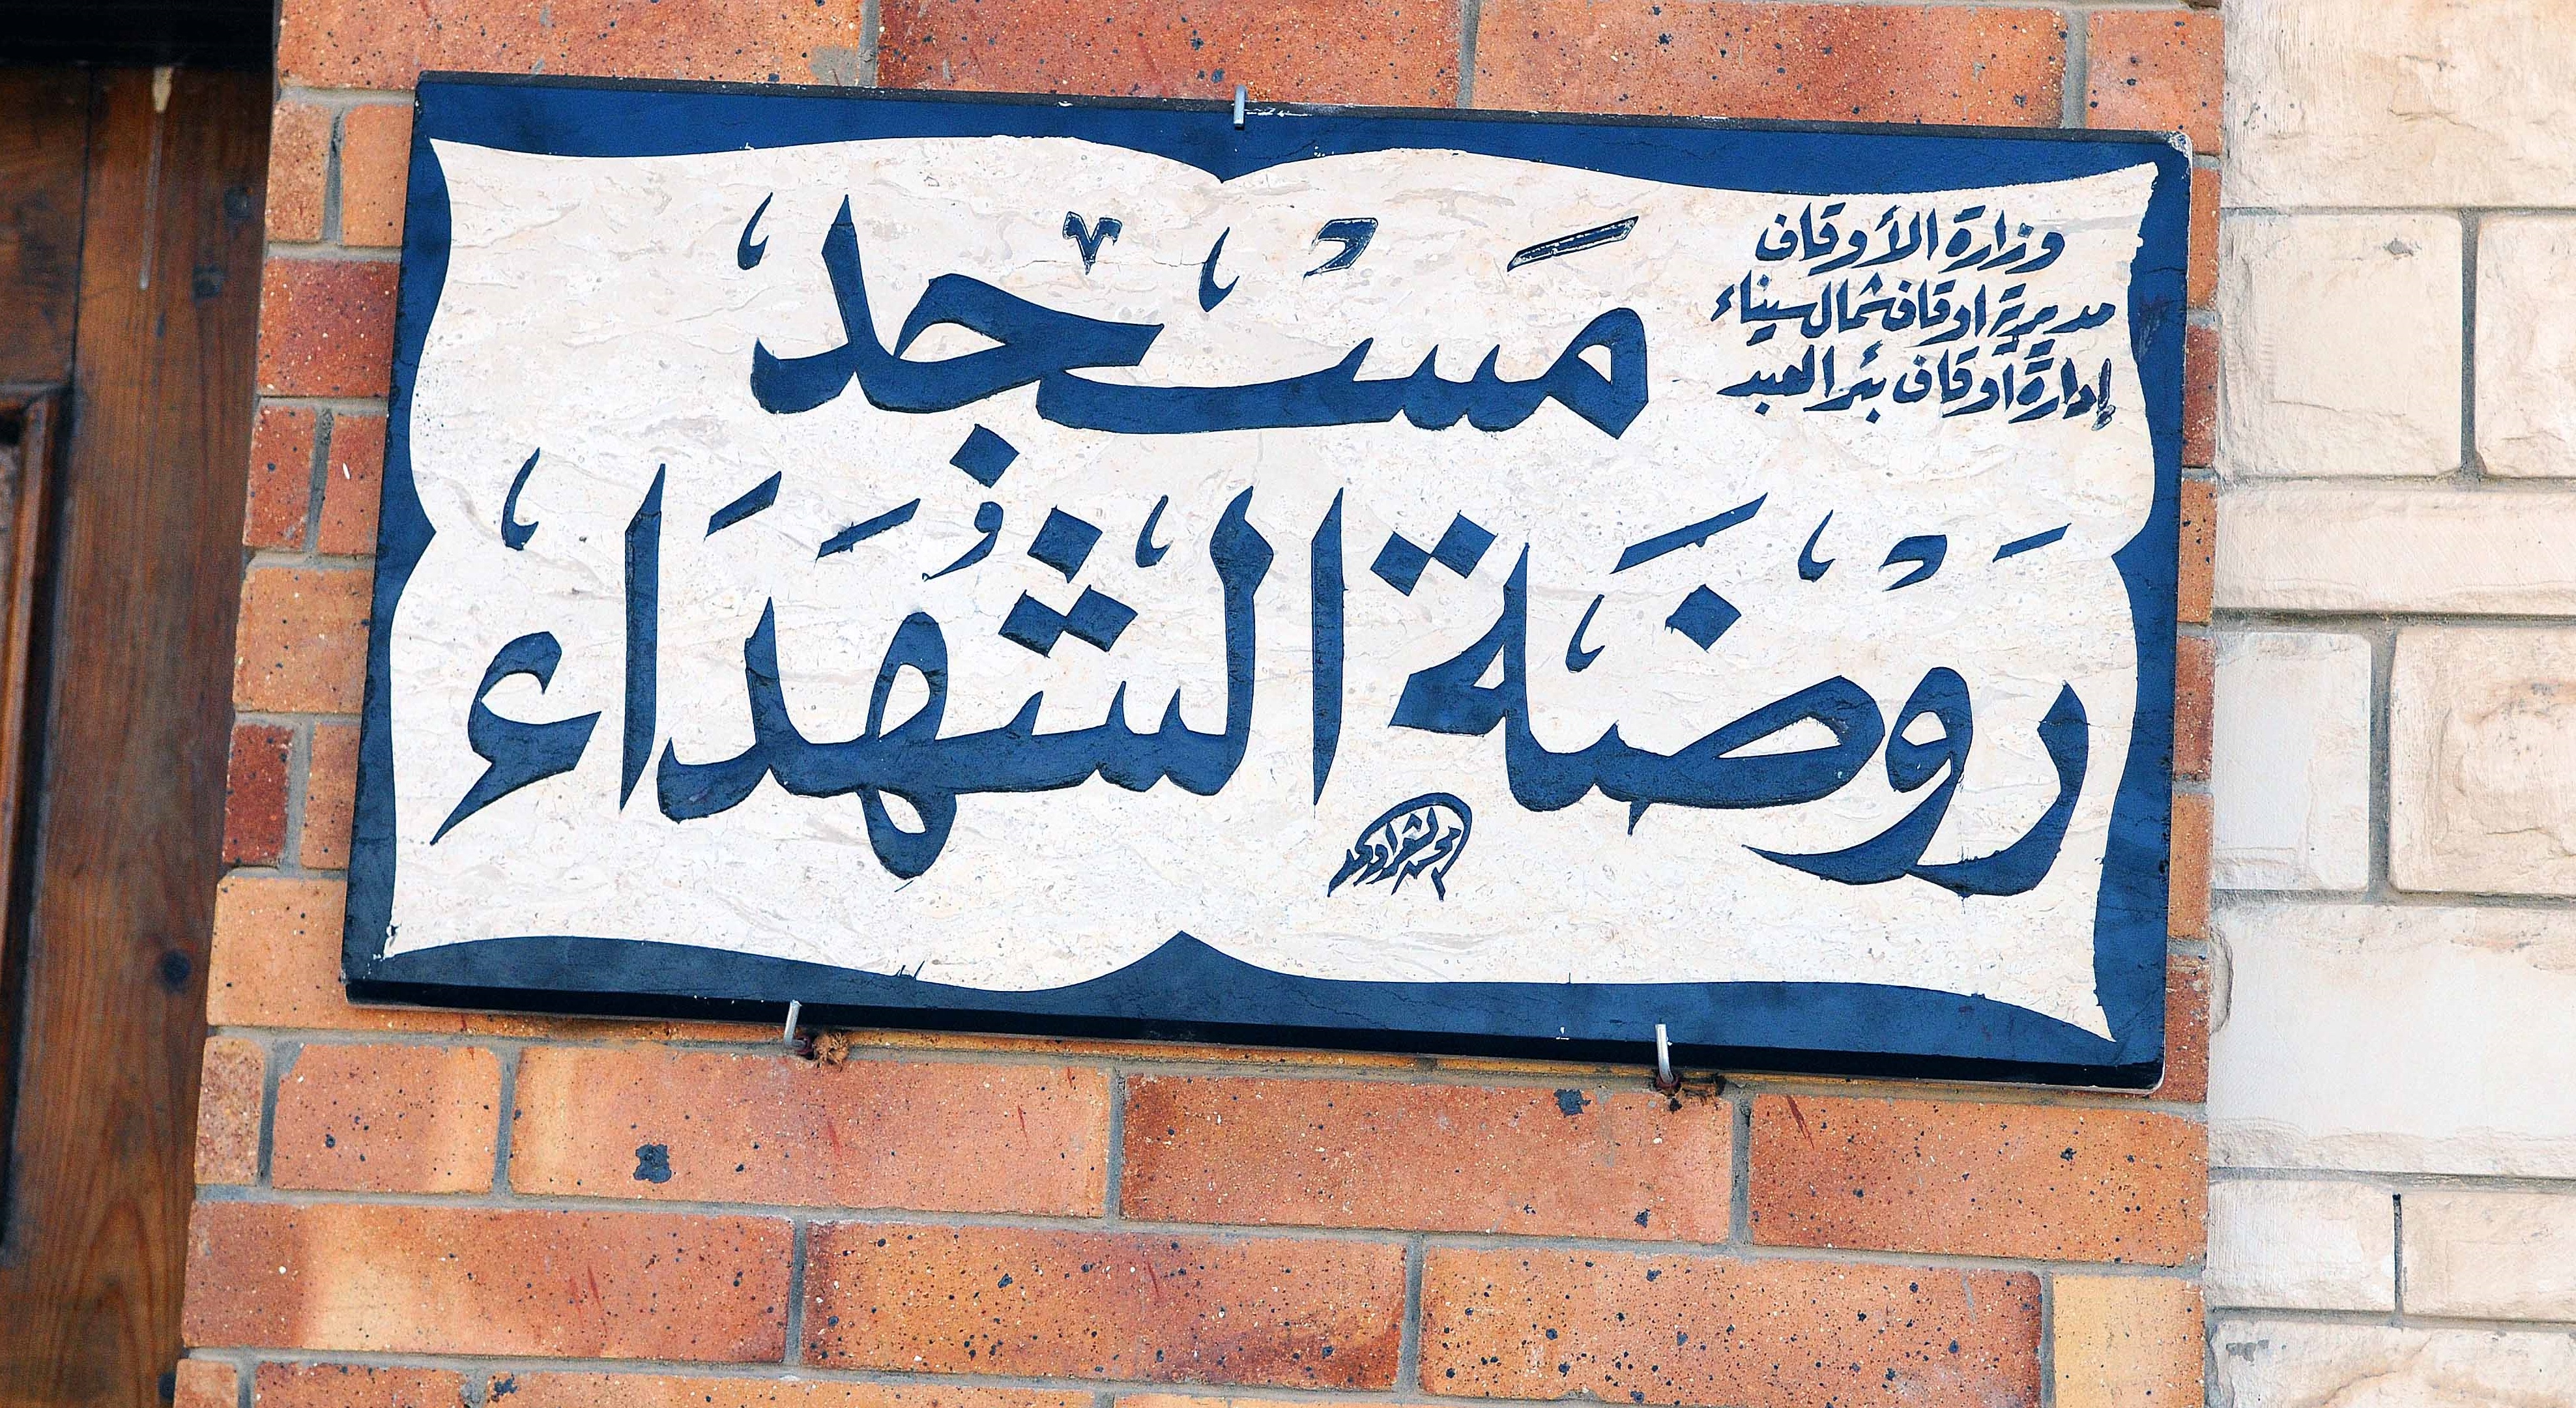 وزارة الأوقاف
مديرية اوقاف شمال سيناء
إدارة اوقاف بئر العبد
مَسْجد
رَوْضَة الشُهَدَاء